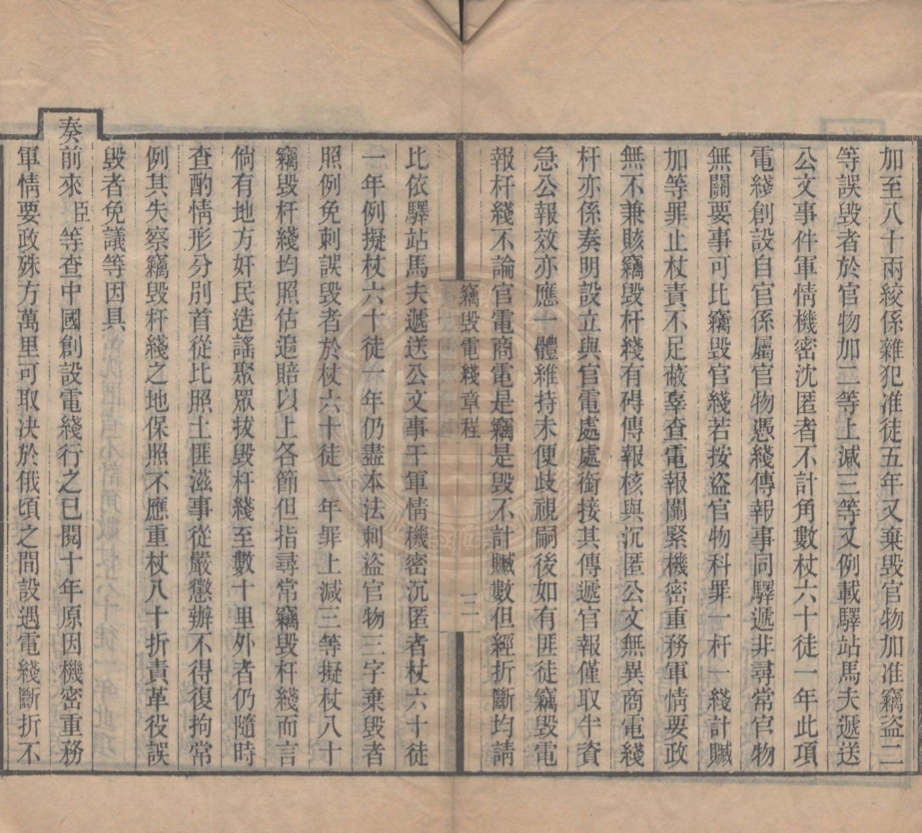 加至八十兩絞係雜犯准徒五年又棄毀官物加准竊盜二
等誤毀者於官物加二等上減三等又例載驛站馬夫遞送
公文事件軍情機密沈匿者不計角數杖六十徒一年此項
電綫創設自官係屬官物憑綫傳報事同驛遞非尋常官物
無關要事可比竊毀官綫若按盜官物科罪一杆一綫計贓
加等罪止杖責不足蔽辜查電報關緊機密重務軍情要政
無不兼賅竊毀杆綫有碍傳報核與沉匿公文無異商電綫
杆亦係奏明設立與官電處處銜接其傳遞官報僅取半資
急公報效亦應一體維持未便歧視嗣後如有匪徒竊毀電
報杆綫不論官電商電是竊是毀不計贓數但經折斷均請
竊毀電綫章程
三
比依驛站馬夫遞送公文事干軍情機密沉匿者杖六十徒
一年例擬杖六十徒一年仍盡本法刺盜官物三字棄毀者
照例免刺誤毀者於杖六十徒一年罪上減三等擬杖八十
竊毀杆綫均照估追賠以上各節但指尋常竊毀杆綫而言
倘有地方奸民造謠聚眾拔毀杆綫至數十里外者仍隨時
查酌情形分別首從比照土匪滋事從嚴懲辦不得復拘常
例其失察竊毀杆綫之地保照不應重杖八十折責革役誤
毀者免議等因具
奏前來臣等查中國創設電綫行之已閱十年原因機密重務
軍情要政殊方萬里可取決於俄頃之間設遇電綫斷折不